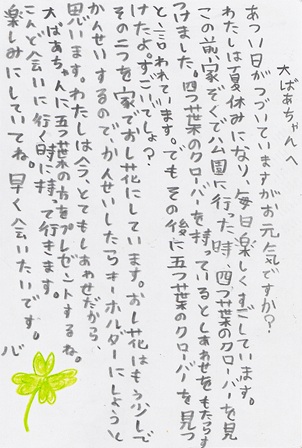 大ばあちゃんへ
あつい日がつづいていますがお元気ですか？
わたしは夏休みになり、毎日楽しくすごしています。
この前、家ぞくで公園に行った時、四つ葉のクローバーを見
つけました。四つ葉のクローバーを持っているとしあわせをもたらす
と言われています。でもその後に五つ葉のクローバーを見つ
けたよ。すごいでしょ？
その二つを家でおし花にしています。おし花はもう少しで
かんせいするのでかんせいしたらキーホルダーにしようと
思います。わたしは今、とてもしあわせだから、
大ばあちゃんに五つ葉の方をプレゼントするね。
こんど会いに行く時に持って行きます。
楽しみにしていてね。早く会いたいです。